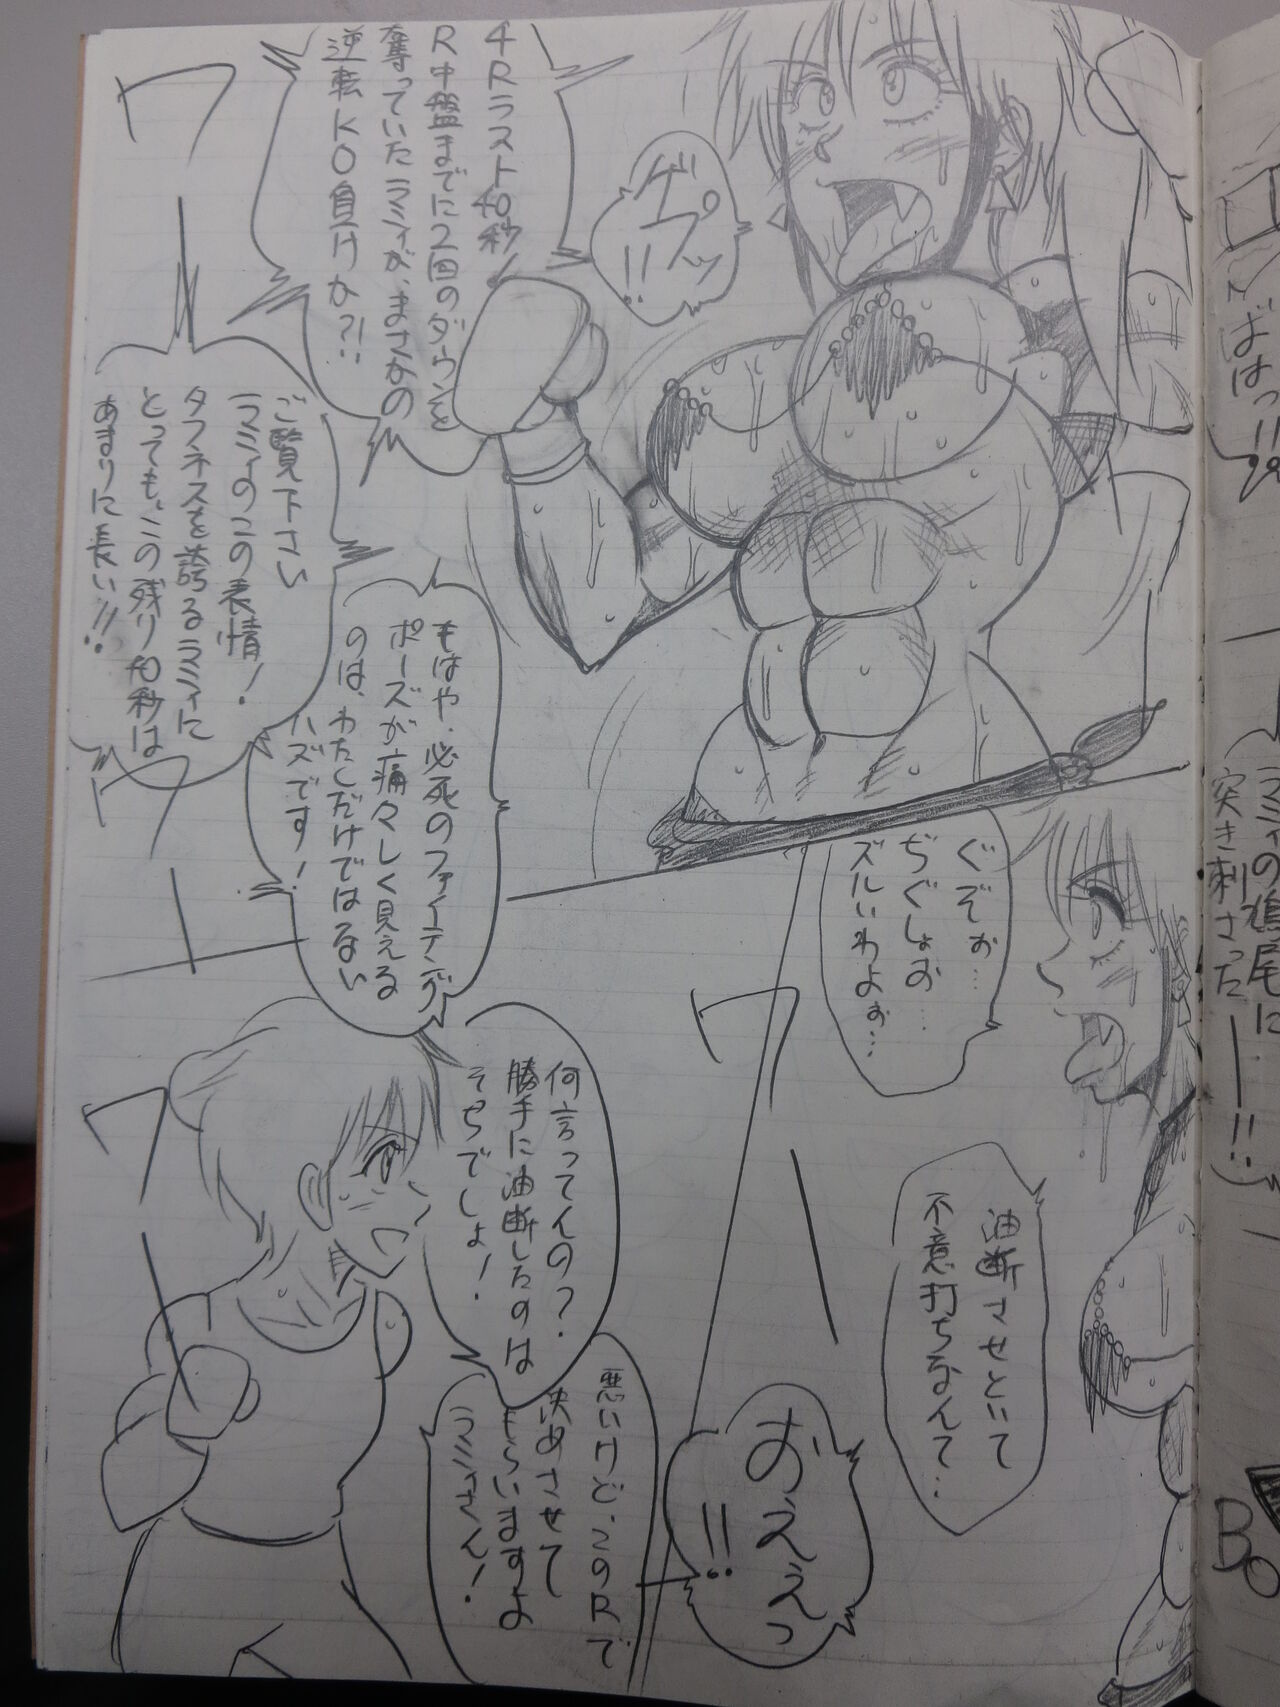 ゲプッ
!!
4Rラスト40秒!
R中盤までに2回のダウンを
奪っていたラミィが、まさかの
逆転KO負けか?!!
ご覧下さい
ラミィのこの表情!
タフネスを誇るラミィに
とっても、この残り40秒は
あまりに長い!!
もはや、必死のファイティング
ポーズが痛々しく見える
のは、わたしだけではない
ハズです!
ワー
ワー
ぐぞぉ…
ぢぐしょお…
ズルいわよぉ…
油断させといて
不意打ちなんて…
おええっ
!!
何言ってんの?
勝手に油断したのは
そっちでしょ!
悪いけど、このRで
決めさせて
もらいますよ
ラミィさん!
ワー
ワー
ばはっ!!
ラミィの鳩尾に
突き刺さったー!!